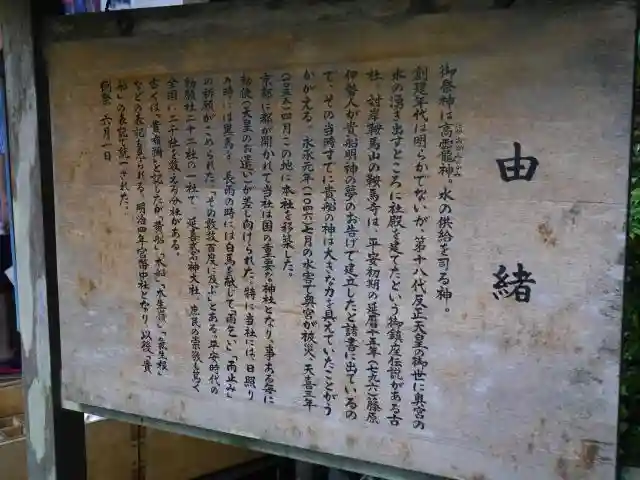 由緒
御祭神は高龗神。水の供給を司る神。
創建年代は明らかでないが、第十八代反正天皇の御世に奥宮の
水の湧き出すところに社殿を建てたという御鎮座伝説がある古
社。対岸鞍馬山の鞍馬寺は、平安初期の延暦十五年(七九六)藤原
伊勢人が貴船明神の夢のお告げで建立したと諸書に出ているの
で、その当時すでに貴船の神は大きな力を具えていたことがう
かがえる。永承元年(一〇四六)七月の水害で奥宮が被災、天喜三年
(一〇五五)四月この地に本社を移築した。
京都に都が開かれて当社は国の重要な神社となり、事ある毎に
勅使(天皇のお遣い)が差し向けられた。特に当社には、日照り
の時には黒馬を、長雨の時には白馬を献じて「雨乞い」「雨止み」
の祈願がこめられた。「その数数百度に及ぶ」とある。平安時代の
勅願社二十二社の一社で、延喜式の神大社。庶民の崇敬も広く
全国に二千社を数える分社がある。
古くは、「貴布禰」と記したが「黄船」「木船」「木生嶺」「気生根」
などの表記も見られる。明治四年官幣中社となり、以後「貴
船」の表記で統一された。
例祭 六月一日